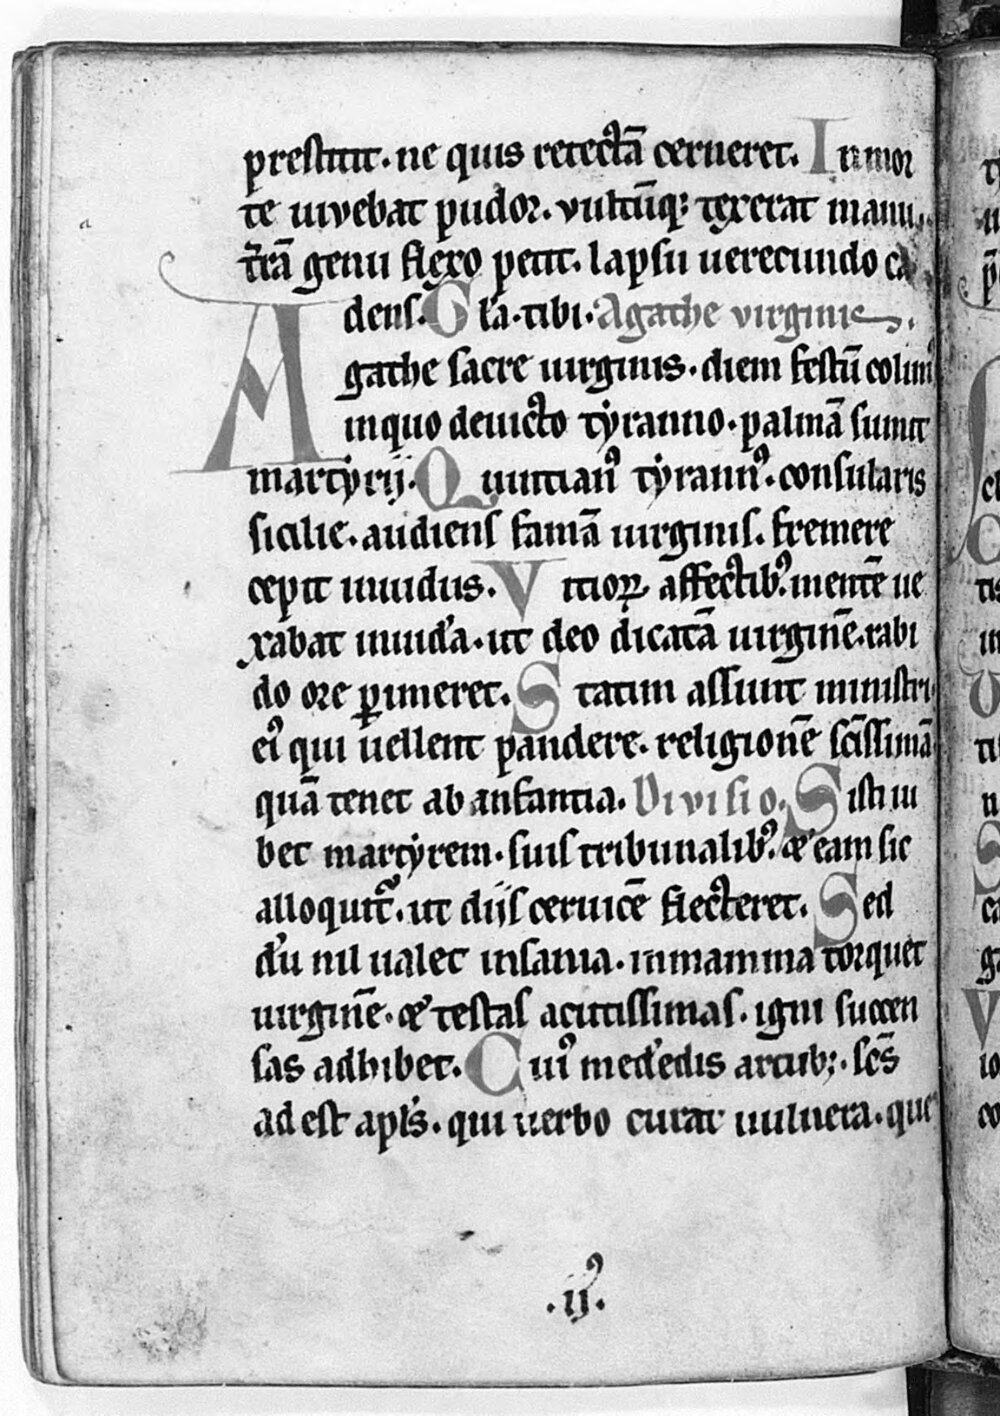 prestitit. ne quis retectā cerneret. In mor
te uivebat pudor. vultūq; texerat manu.
t̄rā genu flexo petit. lapsu uerecundo ca
dens. Gl̄a. tibi. Agathe virginis.
Agathe sacre uirginis. diem festū colim᷒
inquo deuicto tẏranno. palmā sumit
martẏrij. Quintian᷒ tẏrann᷒. consularis
sicilie. audiens famā uirginis. fremere
cepit inuidus. Vitioꝝ affectib᷒. mentē ue
xabat inuid'a. ut deo dicatā uirginē. rabi
do ore ꝑimeret. Statim assunt ministri
ei᷒ qui uellent pandere. religionē sc̄issimā
quā tenet ab anfantia. Divisio. Sisti iu
bet martẏrem. suis tribunalib᷒. & eam sic
alloquit᷑. ut dijs ceruicē flecteret. Sed
d'u nil ualet insania. inmamma torquet
uirginē. & testas acutissimas. igni succen
sas adhibet. Cui᷒ med'edis artub;. sc̄s
ad est apl's. qui uerbo curat uulnera. que
a
.ij᷒.